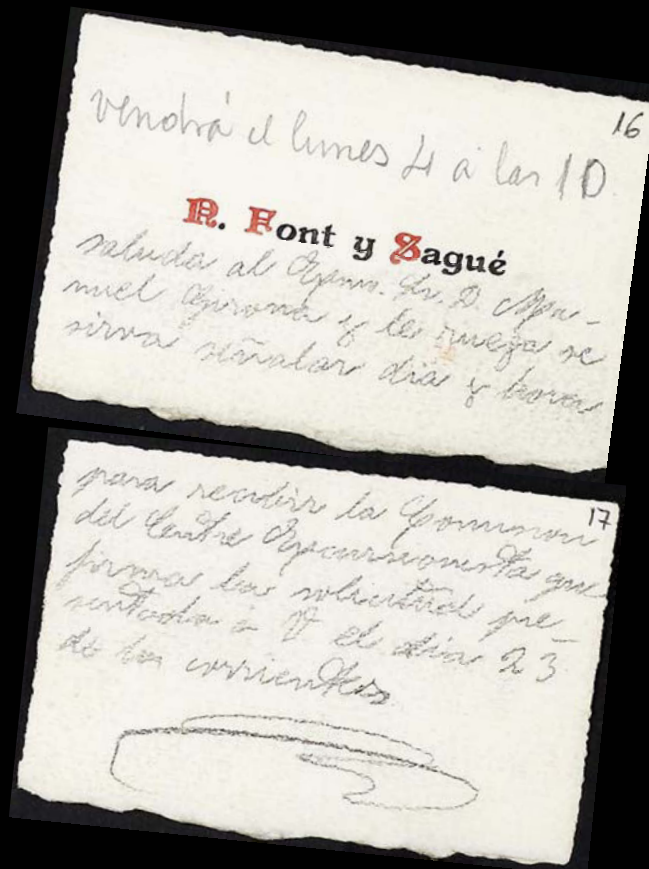 16
vendrá el lunes 4 a las 10
N. Font y Sagué
saluda al Excmo. Sr. D. Ma-
nuel Girona y le ruega se
sirva señalar dia y hora
17
para recibir la Comision
del Centre Excursionista que
firma la solicitud pre-
sentada a V el dia 23
de los corrientes